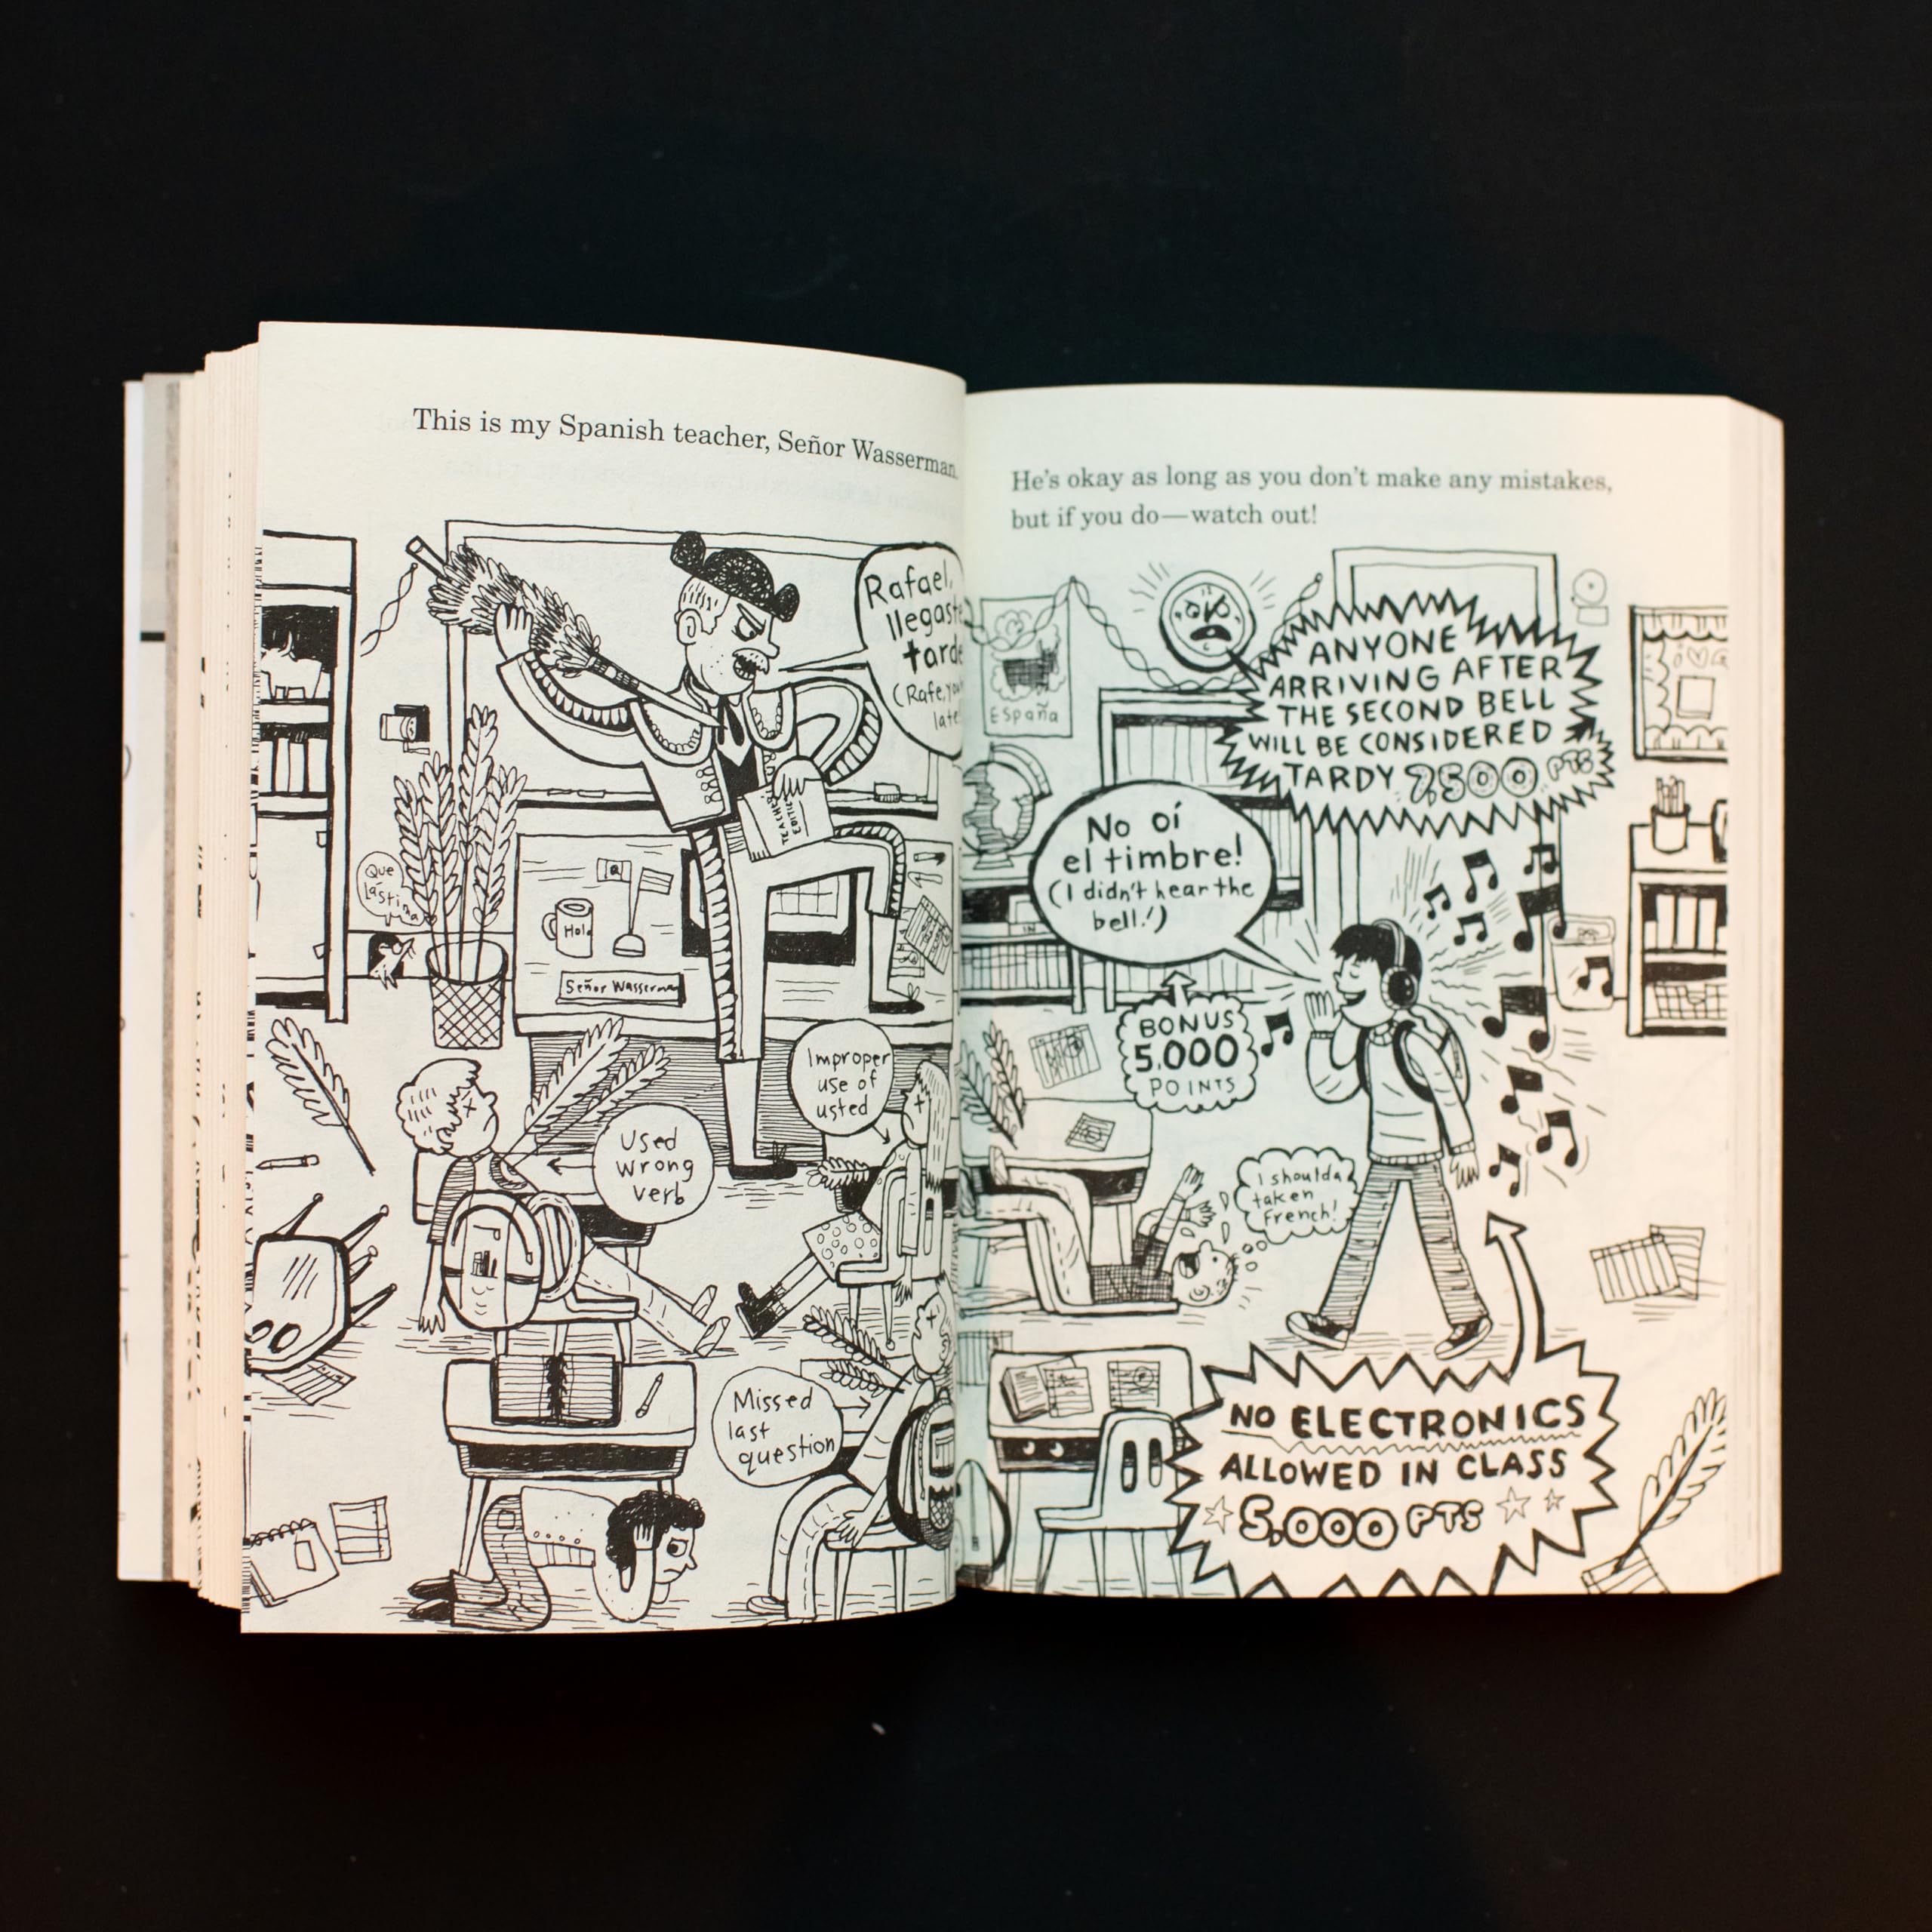 This is my Spanish teacher, Señor Wasserman.
Rafael,
llegaste
tarde
(Rafe, you
late
Que
lástima
TEACHER
EDITION
Hola
Señor Wasserman
Improper
use of
usted
Used
wrong
verb
Missed
last
question
He's okay as long as you don't make any mistakes,
but if you do—watch out!
España
ANYONE
ARRIVING AFTER
THE SECOND BELL
WILL BE CONSIDERED
TARDY 7,500 PTS
No oí
el timbre!
(I didn't hear the
bell!)
IN
BONUS
5,000
POINTS
I shoulda
taken
French!
NO ELECTRONICS
ALLOWED IN CLASS
5,000 PTS